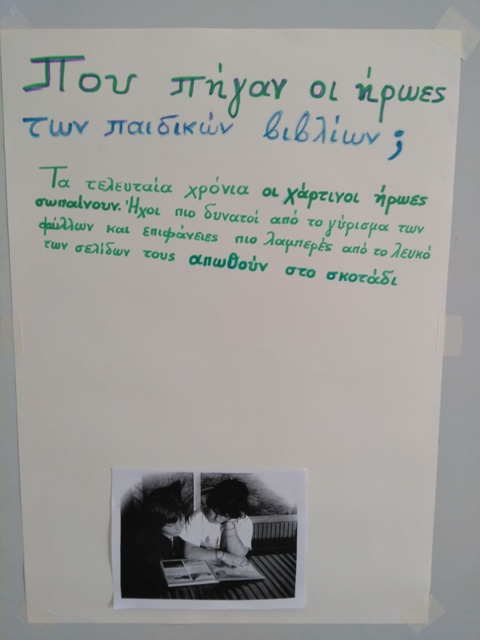 Που πήγαν οι ήρωες
των παιδικών βιβλίων;
Τα τελευταία χρόνια οι χάρτινοι ήρωες
σωπαίνουν. Ήχοι πιο δυνατοί από το γύρισμα των
φύλλων και επιφάνειες πιο λαμπερές από το λευκό
των σελίδων τους απωθούν στο σκοτάδι